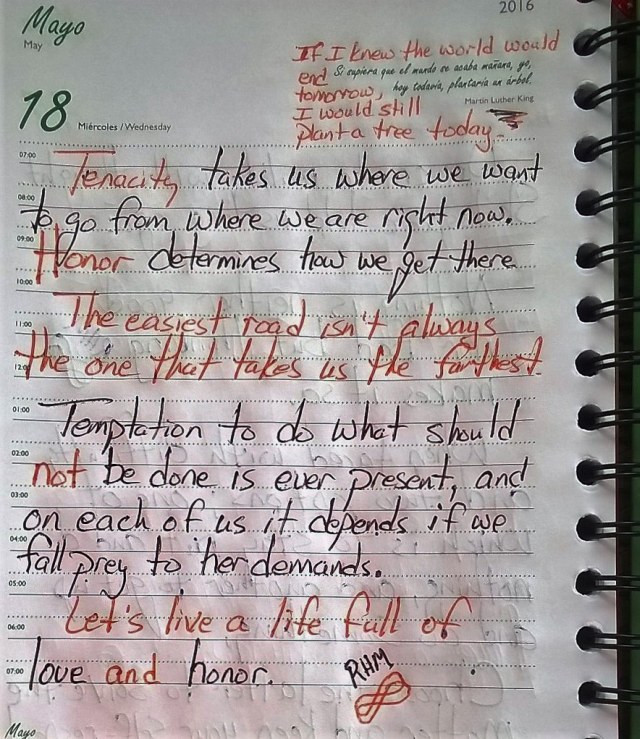 Mayo
May
2016
If I knew the world would
end Si supiera que el mundo se acaba mañana, yo,
tomorrow, hoy todavía, plantaría un árbol.
Martin Luther King
I would still
plant a tree today.
18 Miércoles / Wednesday
07:00
Tenacity takes us where we want
08:00
to go from where we are right now.
09:00
Honor determines how we get there
10:00
The easiest road isn't always
11:00
the one that takes us the farthest.
12:00
01:00
Temptation to do what should
02:00
not be done is ever present, and
03:00
on each of us it depends if we
04:00
fall prey to her demands.
05:00
Let's live a life full of
06:00
love and honor.
07:00
RHM
Mayo